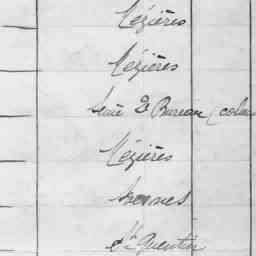 Mézières
Mézières
Seine 2e Bureau (colon
Mézières
Avesnes
St Quentin